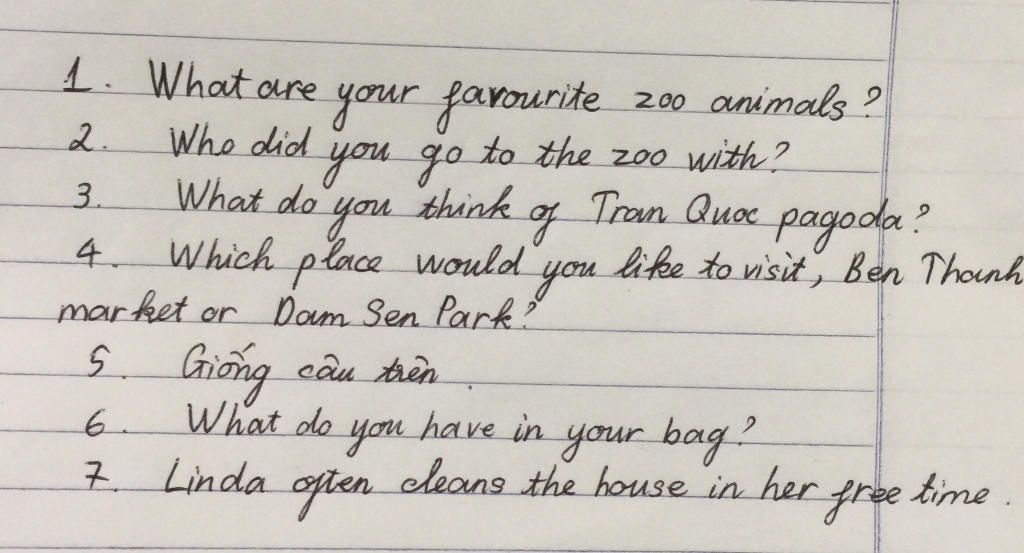 1. What are your favourite zoo animals?
2. Who did you go to the zoo with?
3. What do you think of Tran Quoc pagoda?
4. Which place would you like to visit, Ben Thanh
market or Dam Sen Park?
5. Giống câu trên.
6. What do you have in your bag?
7. Linda often cleans the house in her free time.